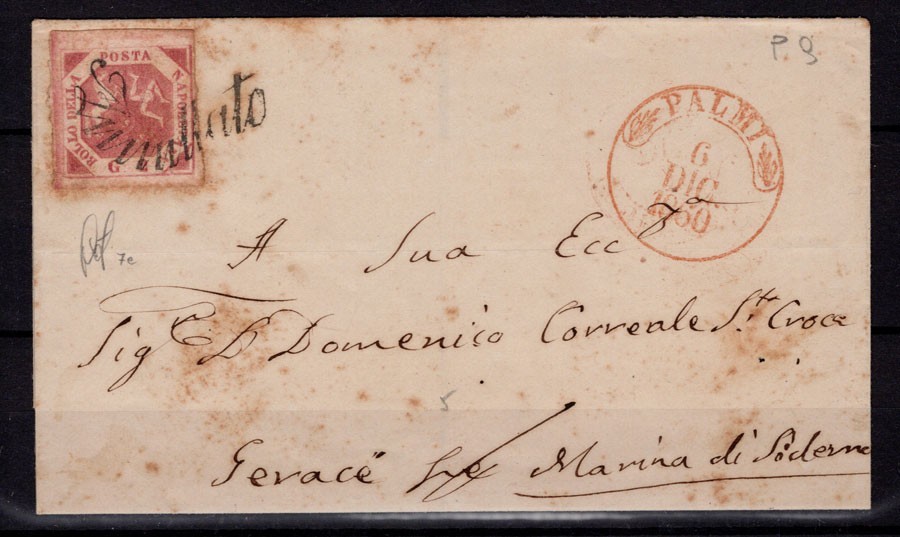 POSTA
NAPOLETANA
BOLLO DELLA
G
Annullato
P. 9
PALMI
6
DIC.
1860
7e
A Sua Ecc.za
Sig.e D. Domenico Correale S.ta Croce
5
Gerace per Marina di Siderno